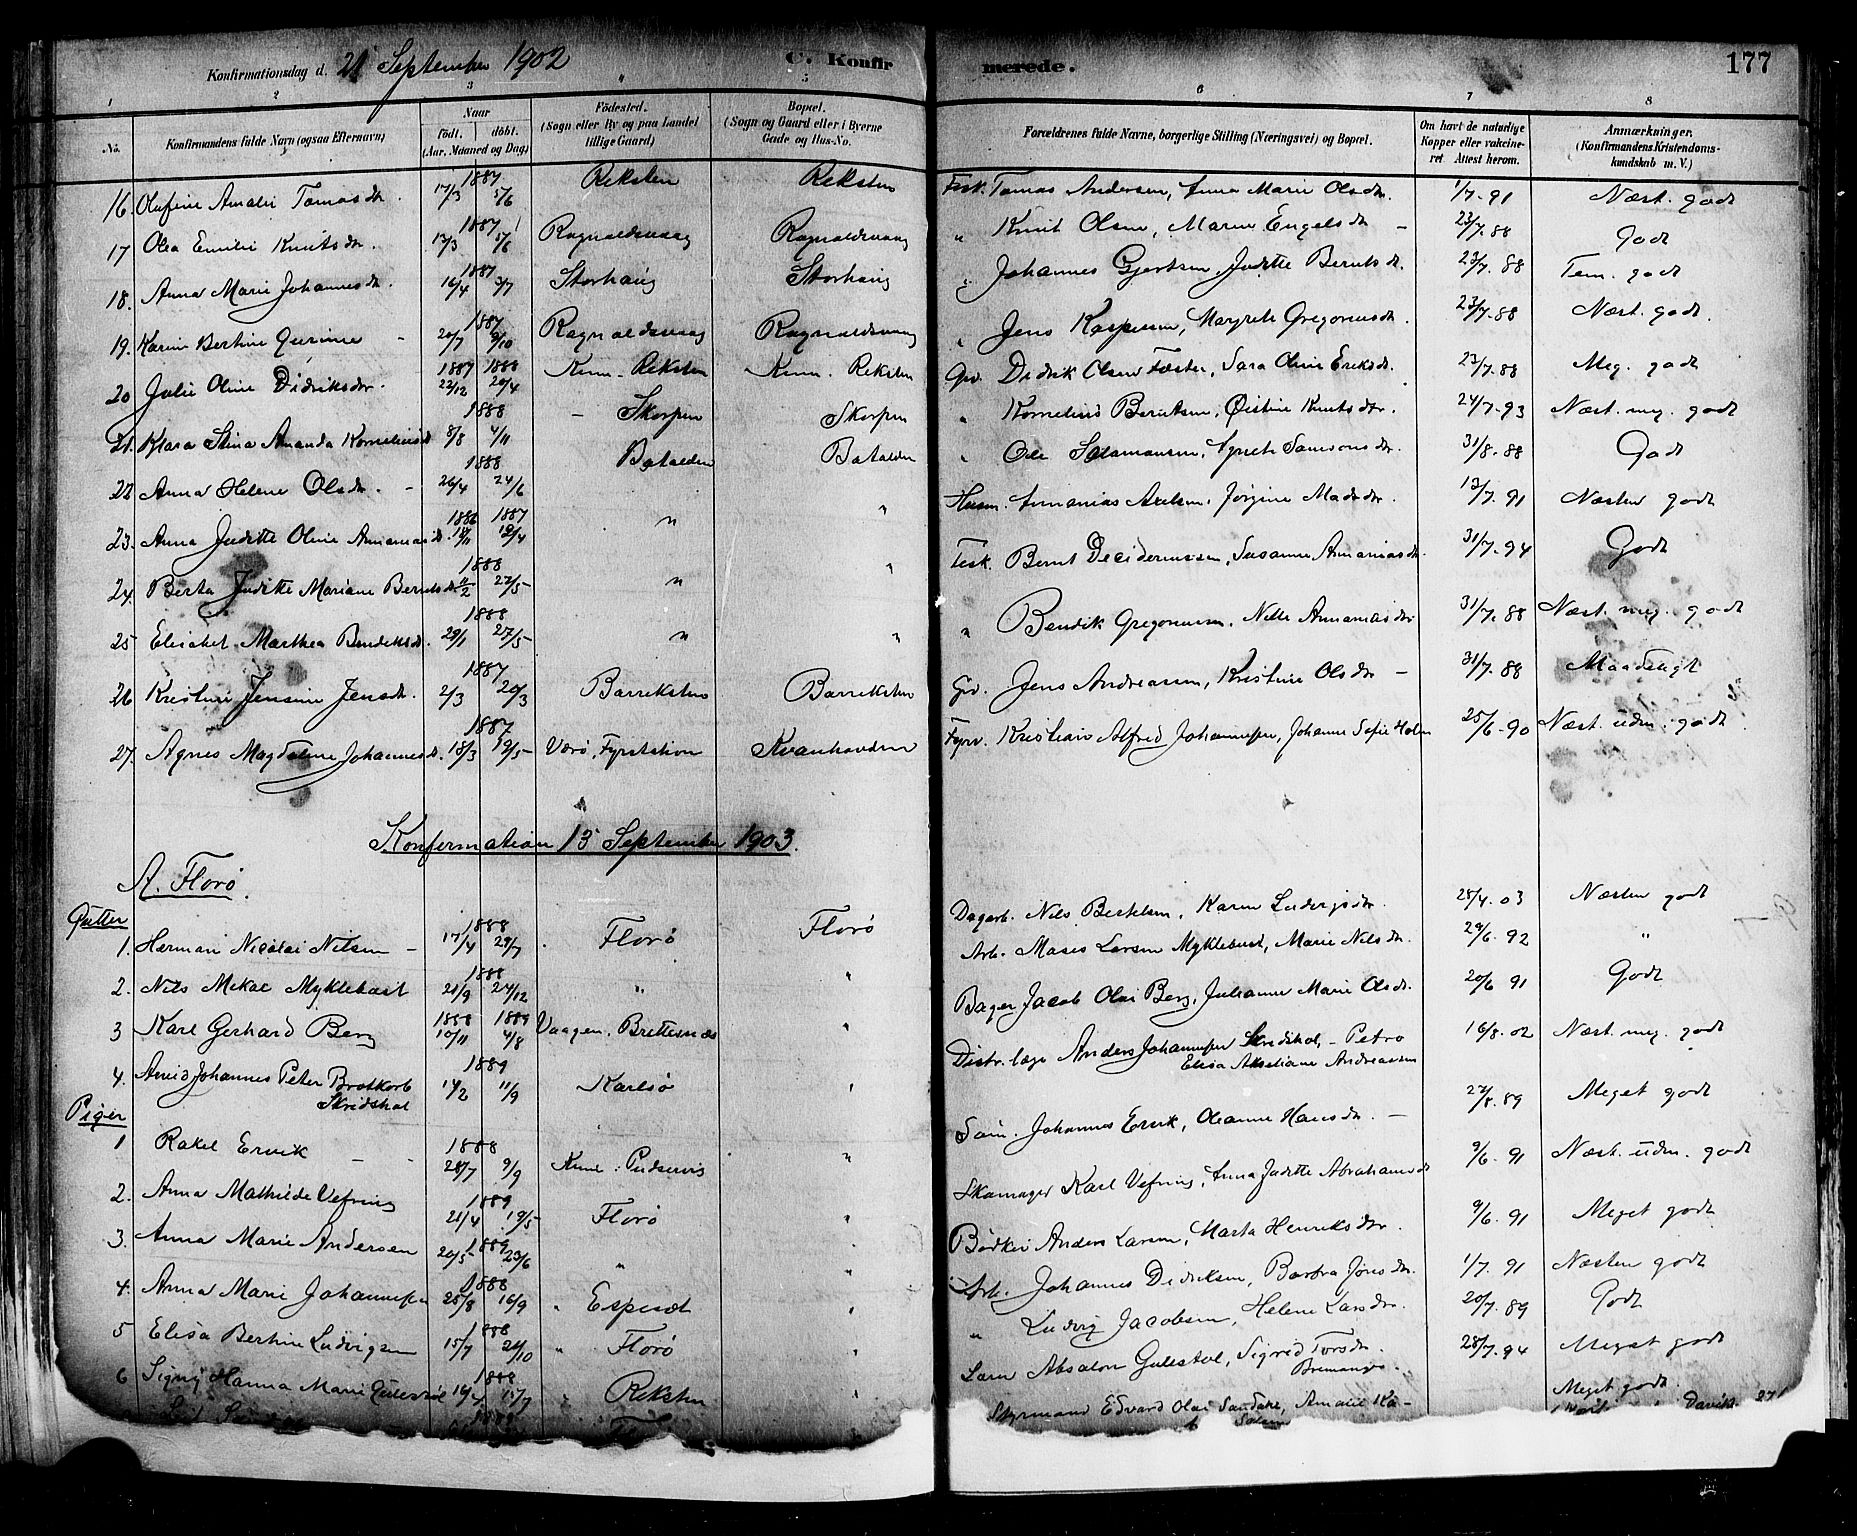 Konfirmationsdag d. 21 September 1902 C. Konfirmerede. 177
1 2 3 5 6 7 8
No. Konfirmandens fulde Navn (ogsaa Efternavn) Naar födt. döbt. (Aar, Maaned og Dag) Födested. (Sogn eller By og paa Landet tillige Gaard) Bopæl. (Sogn og Gaard eller i Byerne Gade og Hus-No. Forældrenes fulde Navne, borgerlige Stilling (Næringsvei) og Bopæl. Om havt de naturlige Kopper eller vaccineret. Attest herom. Anmærkninger. (Konfirmandens Kristendomskundskab m. V.)
16. Olufine Amalie Tomasdr. 1887 17/3 5/6 Reksten Reksten Fisk. Tomas Andersen, Anna Marie Olsdr. 1/7. 91 Næst. godt
17 Olea Emilie Knutsdr. 1887 17/3 5/6 Ragnaldsvaag Ragnaldsvaag " Knut Olsen, Maren Engelsdr 23/7. 88 Godt
18. Anna Marie Johannesdr. 1887 16/4 3/7 Storhaug Storhaug " Johannes Gjertsen, Juditte Berntsdr. 23/7. 88 Tem. godt
19. Karen Bertine Jensine 1887 20/7 9/10 Ragnaldsvaag Ragnaldsvaag " Jens Kaspersen, Margrete Gregoriusdr. 23/7. 88 Næst. godt.
20 Julie Oline Didriksdr. 1887 22/12 1888 20/4 Kinn - Reksten Kinn. Reksten Gbr. Didrik Olsen Fæster, Sara Oline Eriksdr. 23/7. 88 Meg. godt
21. Klara Stina Amanda Korneliusdr 1888 8/8 4/11 - Skorpen Skorpen " Kornelius Berntsen, Øistine Knutsdr. 24/7. 93 Næst. meg. godt
22 Anna Helene Olsdr. 1888 26/4 24/6 Batalden Batalden " Ole Salamonsen, Agnete Samsonsdr. 31/8. 88 Godt
23. Anna Juditte Oline Ananiasdr. 1886 18/11 1887 12/4 " " Husm. Annanias Axelsen, Jørgine Madsdr. 13/7. 91 Næsten godt
24. Berta Juditte Mariane Berntsdr. 1888 11/2 27/5 " " Fisk. Bernt Desideriussen, Susanne Annaniasdr. 31/7. 94 Godt
25 Elisabet Marthea Bendiksdr. 1888 29/1 27/5 " " " Bendik Gregoriussen, Nille Annaniasdr 31/7. 88 Næst. meg. godt
26 Kristine Jensine Jensdr. 1887 2/3 20/3 Barreksten Barreksten Gbr. Jens Andreassen, Kristine Olsdr - 31/7. 88 Maadeligt
27. Agnes Magdalene Johannesdr. 1887 15/3 19/5 Værø, Fyrstation Kvanhovden Fyrv. Kristian Alfred Johannesen, Johanne Sofie Holm 25/6. 90 Næst. udm. godt
Konfirmation 13 September 1903.
A. Florø.
Gutter
1. Herman Nicolai Nilsen - 1888 17/4 29/7 Florø Florø Dagarb. Nils Bertelsen, Karen Ludvigsdr. 28/4. 03 Næsten godt
2. Nils Mikal Myklebust 1888 21/9 24/12 " " Arb. Moses Larsen Myklebust, Marie Nilsdr. 29/6. 92 "
3 Karl Gerhard Berg 1888 10/11 1889 4/8 Vaagen. Brettesnes " Bager Jacob Olai Berg, Julianne Marie Olsdr. 20/6 91 Godt
4. Arvid Johannes Peter Brotkorb Skridshol 1889 14/2 11/9 Karlsø " Distr. læge Anders Johannesen Skridshol, - Petro Elisa Akseliane Andreassen 16/8. 02 Næst. meg. godt
Piger
1 Rakel Ervik - 1888 28/7 9/9 Kinn. Pudservig " Søm. Johannes Ervik, Oleanne Hansdr. - 27/8. 89 Meget godt
2. Anna Mathilde Vefring 1889 21/4 19/5 Florø " Skomager Karl Vefring, Anna Juditte Abrahamsdr 9/6. 91 Næst. udm. godt
3. Anna Marie Andersen 1889 20/5 23/6 " " Bødker Anders Larsen, Marta Henriksdr. 9/6. 91 Meget godt
4. Anna Marie Johannesen 1888 25/8 16/9 " Espeset " Arb. Johannes Didriksen, Barbra Jonsdr. 1/7. 91 Næsten godt
5 Elisa Bertine Ludvigsen 1888 15/7 21/10 " Florø " " Ludvig Jacobsen, Helene Larsdr. 20/7. 89 Godt
6 Signy Hanna Marie Gulestøl 1888 15/7 " Reksten " Søm Absalon Gulestøl, Sigrid Torsdr. Bremanger. 28/7. 94 Meget godt
Styrmand Edvard Olai Sandøre, Amalie Ka- Meget godt. Davik.